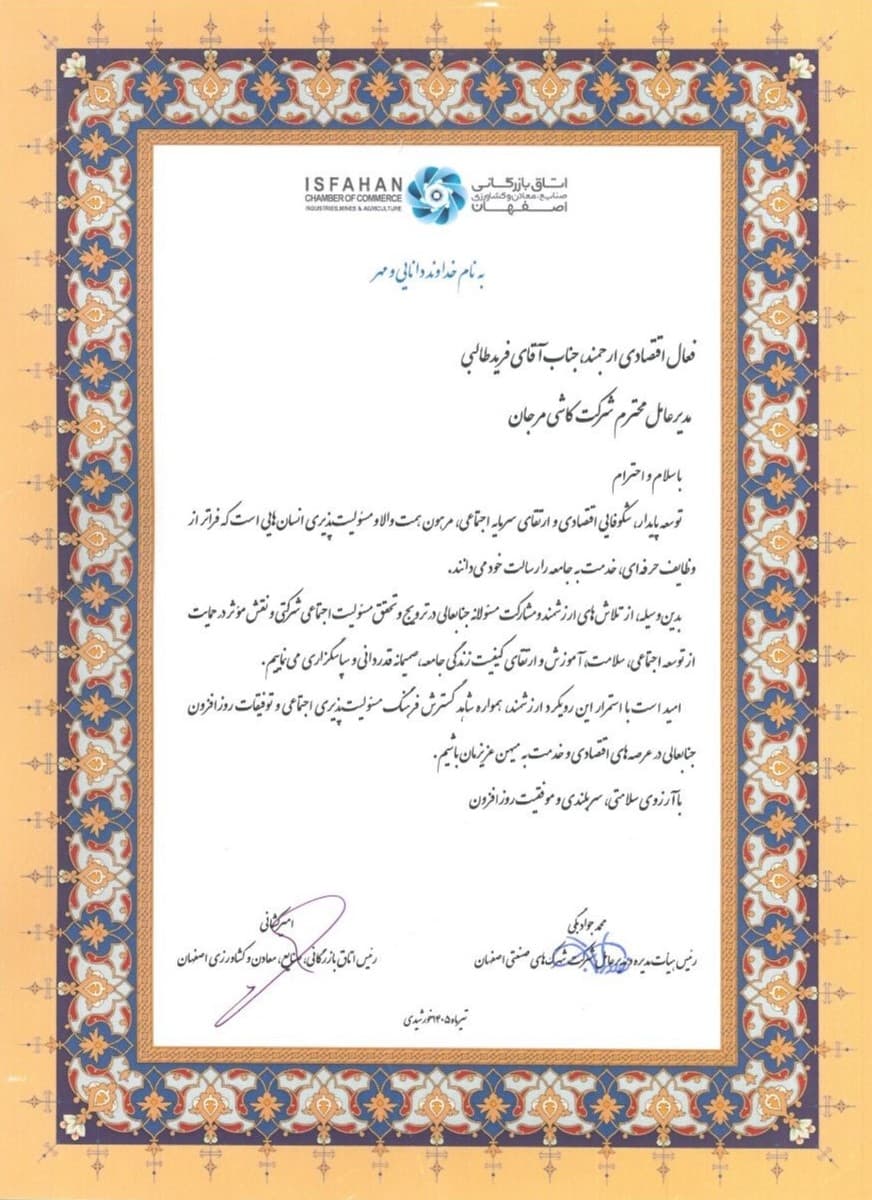 ISFAHAN
CHAMBER OF COMMERCE
INDUSTRIES, MINES & AGRICULTURE
اتاق بازرگانی
صنایع، معادن و کشاورزی
اصفهان
به نام خداوند دانایی و مهر
فعال اقتصادی ارجمند، جناب آقای فرید طالبی
مدیرعامل محترم شرکت کاشی مرجان
با سلام و احترام
توسعه پایدار، شکوفایی اقتصادی و ارتقای سرمایه اجتماعی، مرهون همت والا و مسئولیت‌پذیری انسان‌هایی است که فراتر از
وظایف حرفه‌ای، خدمت به جامعه را رسالت خود می‌دانند.
بدین‌وسیله، از تلاش‌های ارزشمند و مشارکت مسئولانه جنابعالی در ترویج و تحقق مسئولیت اجتماعی شرکتی و نقش مؤثر در حمایت
از توسعه اجتماعی، سلامت، آموزش و ارتقای کیفیت زندگی جامعه، صمیمانه قدردانی و سپاسگزاری می‌نماییم.
امید است با استمرار این رویکرد ارزشمند، همواره شاهد گسترش فرهنگ مسئولیت‌پذیری اجتماعی و توفیقات روزافزون
جنابعالی در عرصه‌های اقتصادی و خدمت به میهن عزیزمان باشیم.
با آرزوی سلامتی، سربلندی و موفقیت روزافزون
محمدجواد بگی
رئیس هیأت مدیره و مدیرعامل شرکت شهرک‌های صنعتی اصفهان
امیر کشانی
رئیس اتاق بازرگانی، صنایع، معادن و کشاورزی اصفهان
تیرماه ۱۴۰۵ خورشیدی